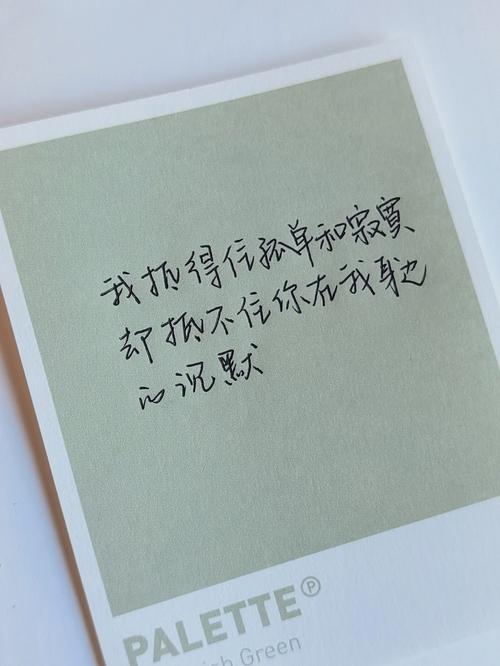 我抵得住孤单和寂寞
却抵不住你在我身边
的沉默
PALETTE℗
Green